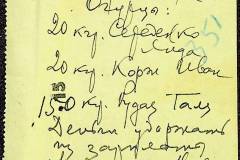 Огурцы:
20 кг. Середенко
Лида
20 кг. Корж Иван
150 кг. Рудас Галя
Деньги удержать
из зарплаты